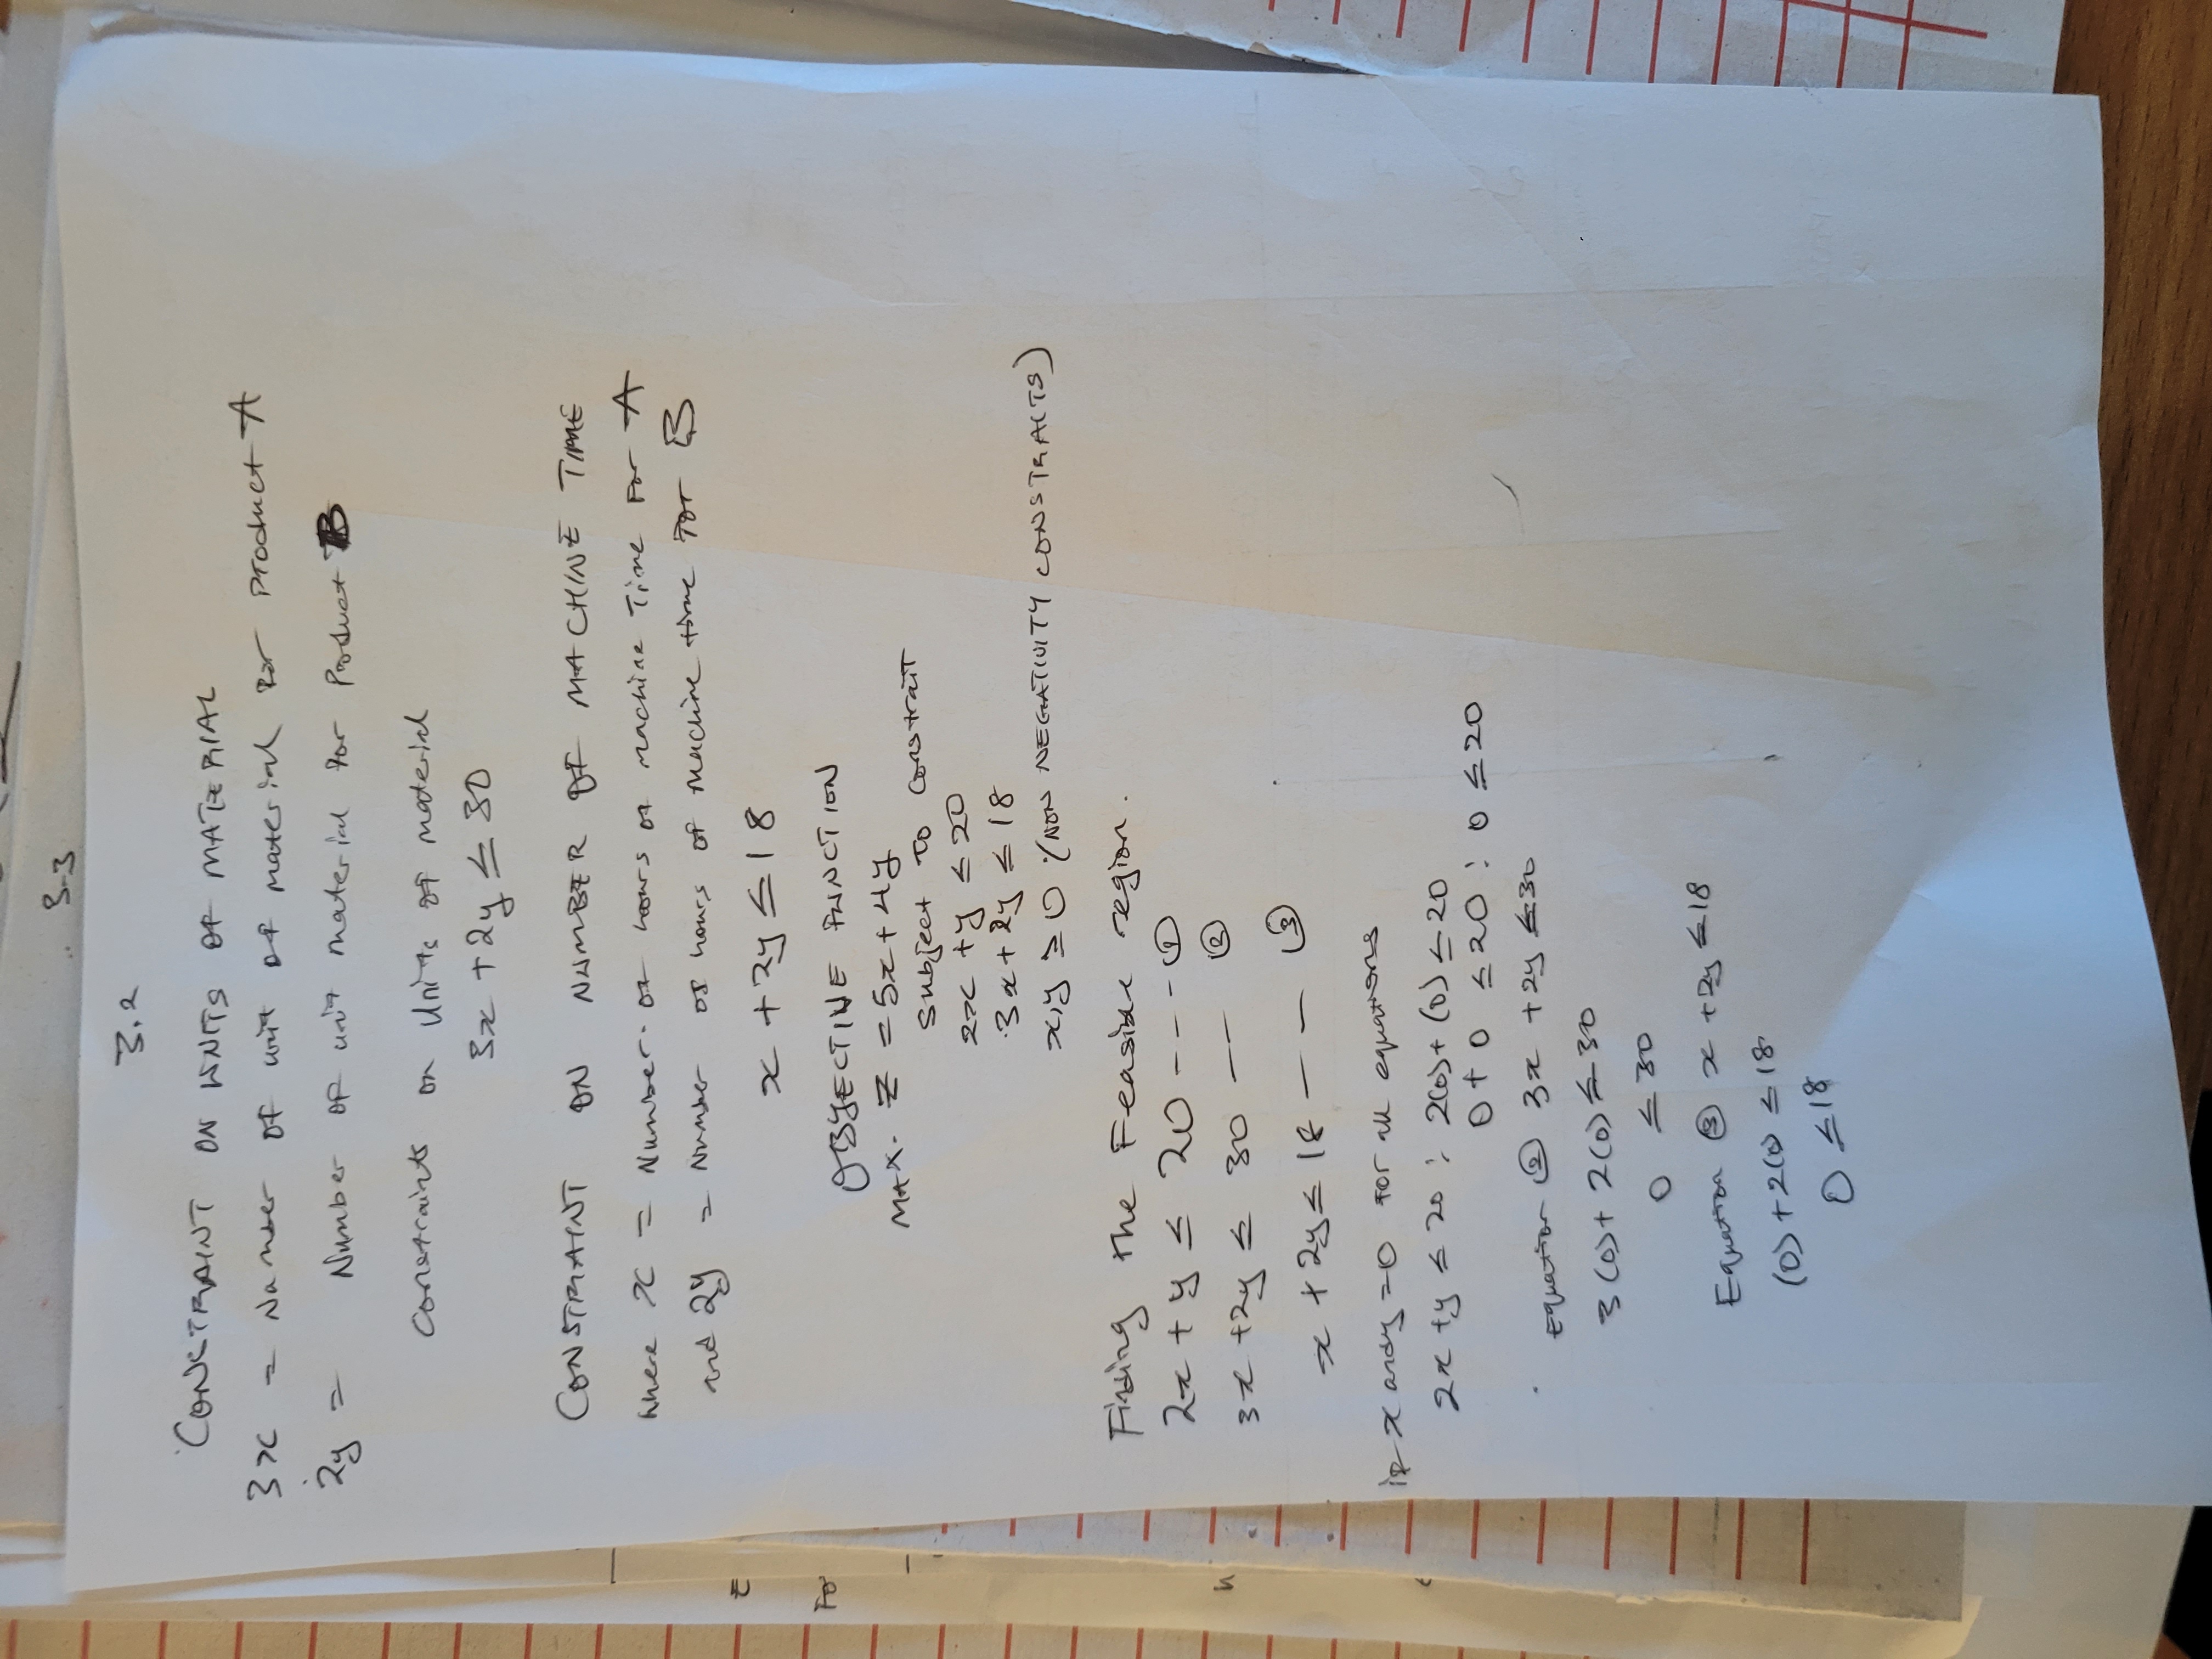 3-3
3.2
CONSTRAINT ON UNITS OF MATERIAL
3x = Number of unit of material for product A
2y = Number of unit material for Product B
Constraints on Units of material
3x + 2y ≤ 30
CONSTRAINT ON NUMBER OF MACHINE TIME
where x = Number of hours of machine Time For A
and 2y = Number of hours of Machine time For B
x + 2y ≤ 18
OBJECTIVE FUNCTION
MAX. Z = 5x + 4y
Subject To Constrait
2x + y ≤ 20
3x + 2y ≤ 18
x,y ≥ 0 (NON NEGATIVITY CONSTRACTS)
Finding the Feasible region.
2x + y ≤ 20 --- ①
3x + 2y ≤ 30 -- ②
x + 2y ≤ 18 -- ③
if x and y = 0 for all equations
2x + y ≤ 20 : 2(0) + (0) ≤ 20
0 + 0 ≤ 20 : 0 ≤ 20
Equation ② 3x + 2y ≤ 30
3(0) + 2(0) ≤ 30
0 ≤ 30
Equation ③ x + 2y ≤ 18
(0) + 2(0) ≤ 18
0 ≤ 18